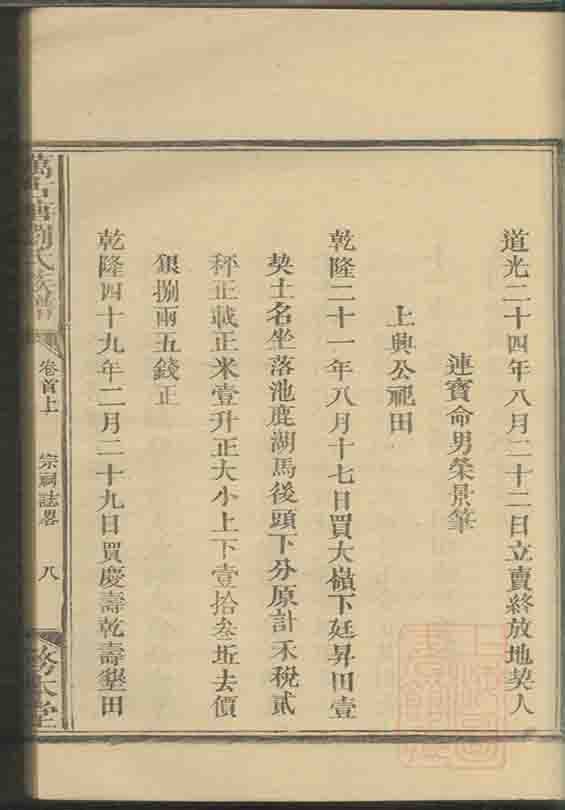 道光二十四年八月二十二日立賣終放地契人
連寶命男榮景筆
上興公祀田
乾隆二十一年八月十七日買大嶺下廷昇田壹
契土名坐落池鹿湖馬後頭下分原計禾稅貳
秤正載正米壹升正大小上下壹拾叁坵去價
銀捌兩五錢正
乾隆四十九年二月二十九日買慶壽乾壽墾田
劉氏族譜
卷首上
宗祠誌畧
八
堂